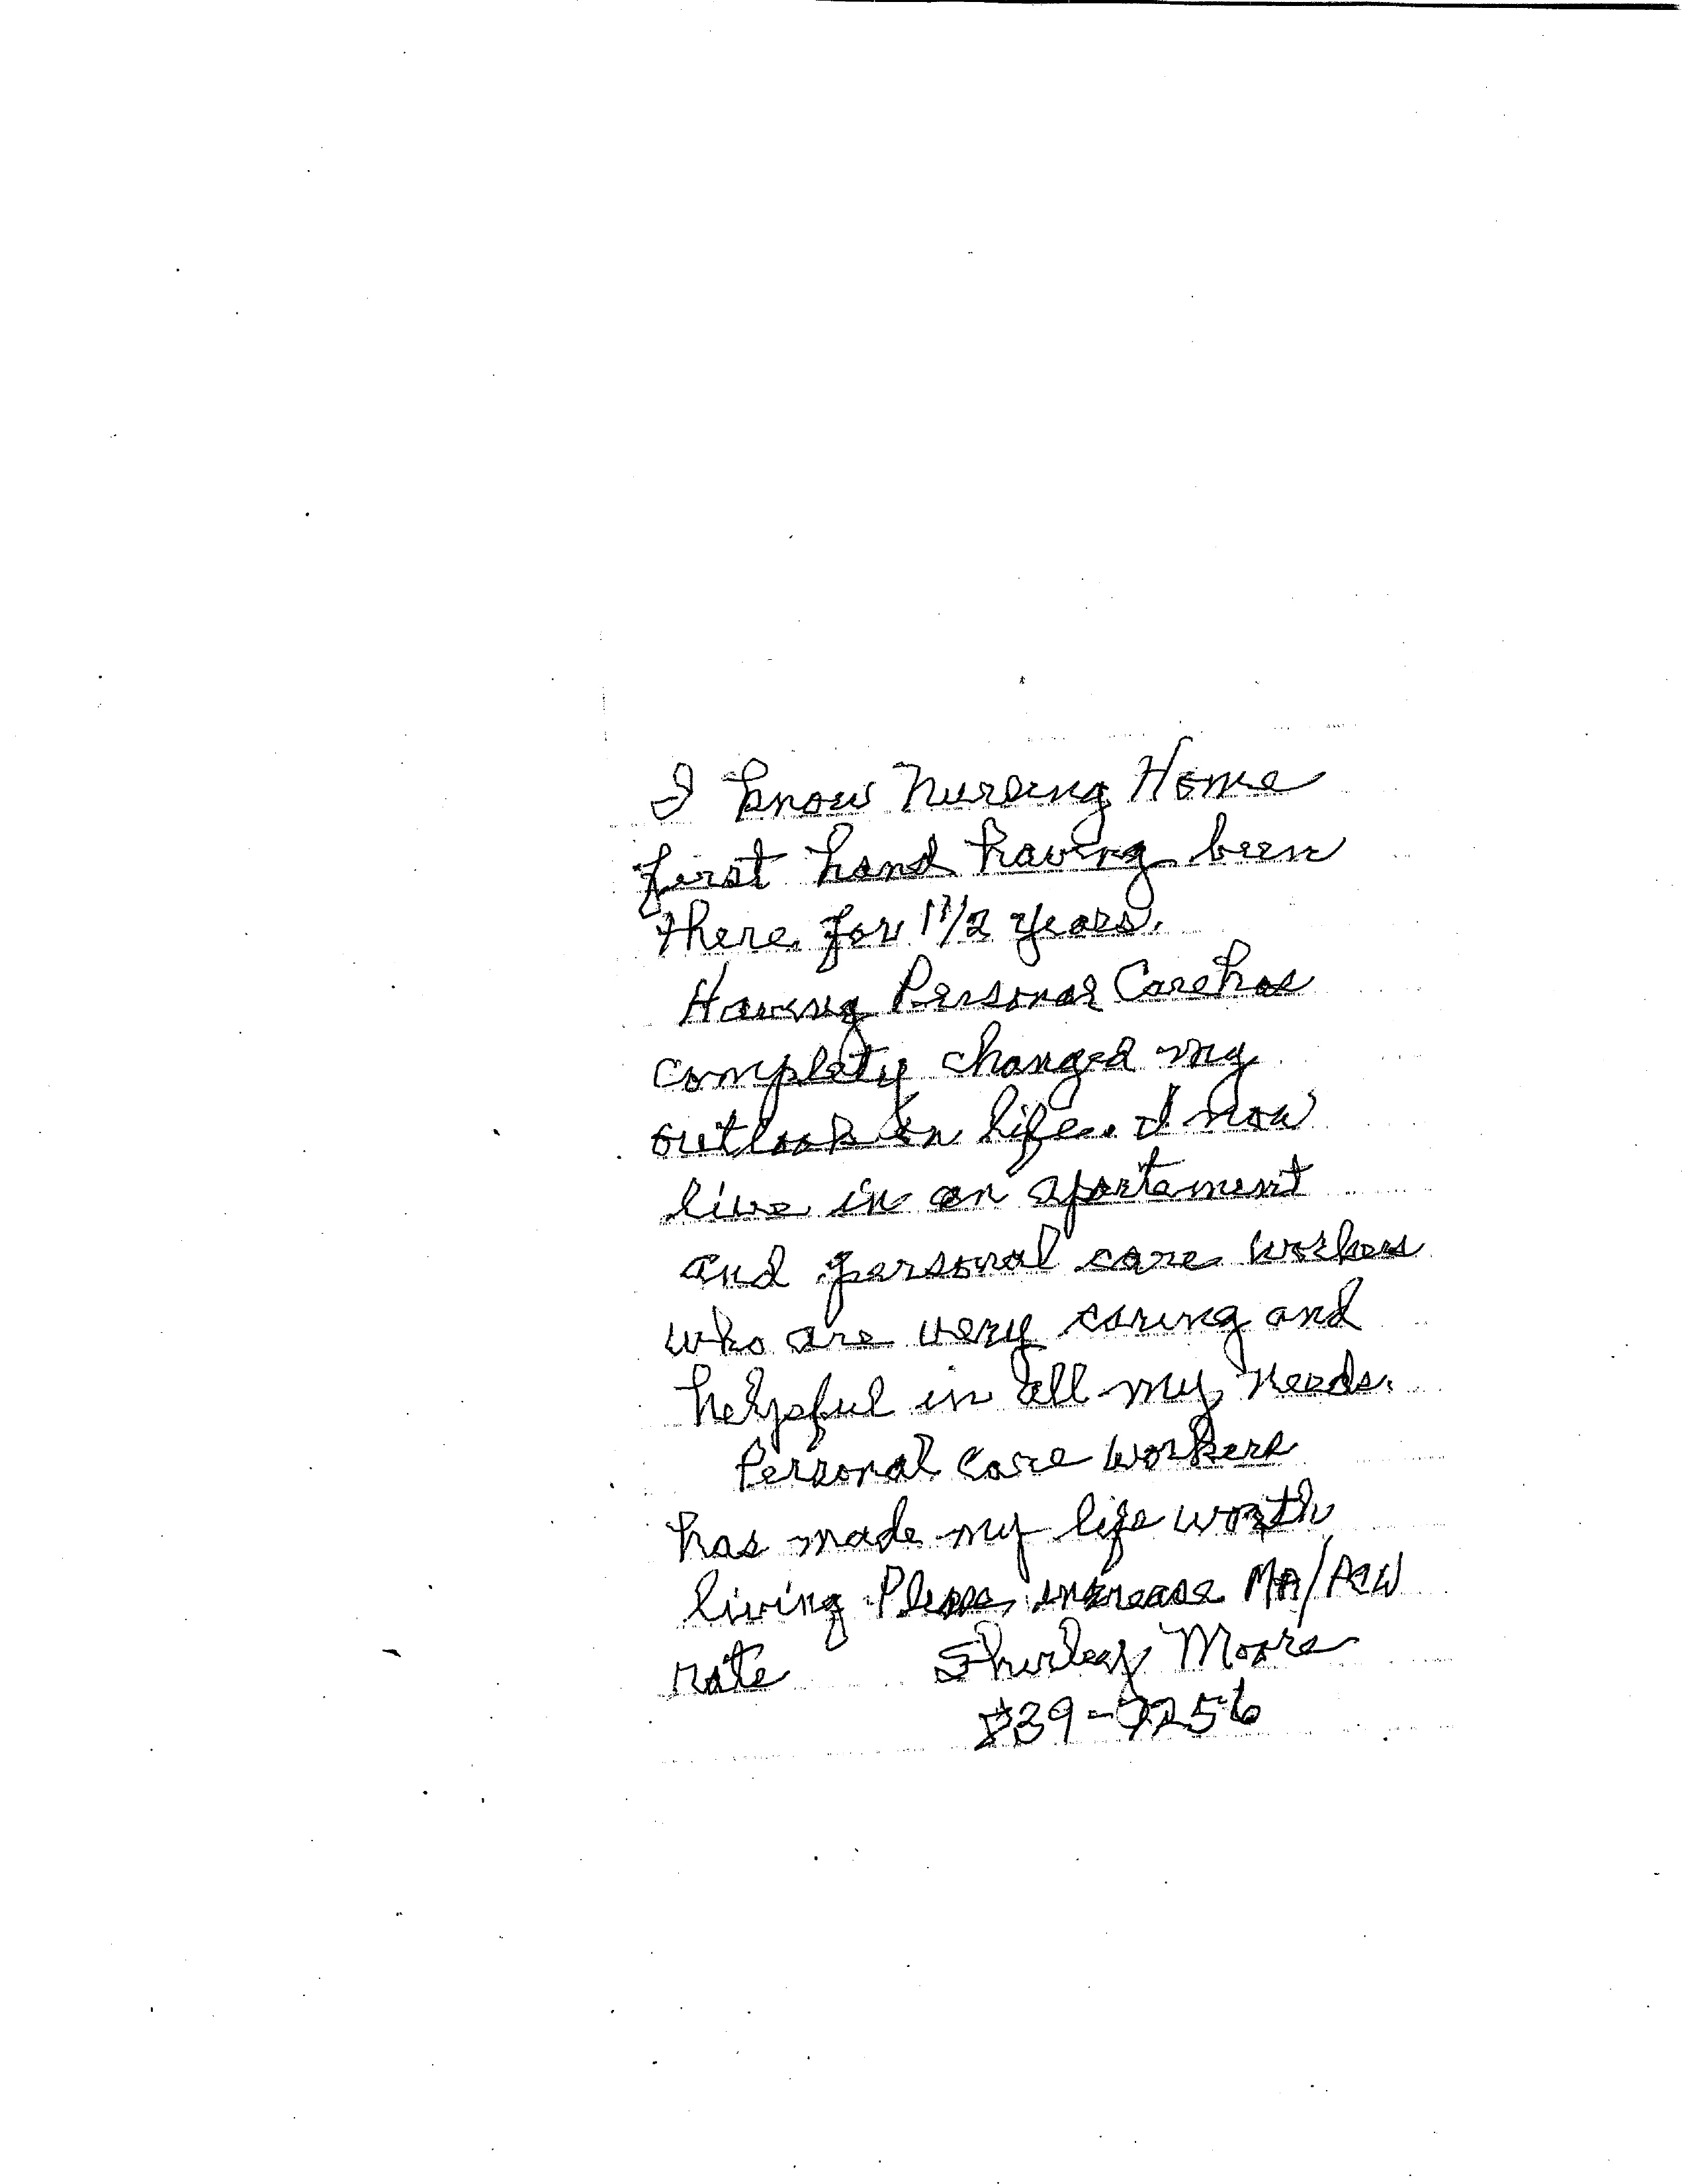 I know Nursing Home
first hand having been
there for 1 1/2 years.
Having Personal Care has
complety changed my
outlook on life. I now
live in an apartament
and personal care workers
who are very caring and
helpful in all my needs.
Personal Care workers
has made my life worth
living Please, increase MA/PCW
rate Shirley Moore
839-7256